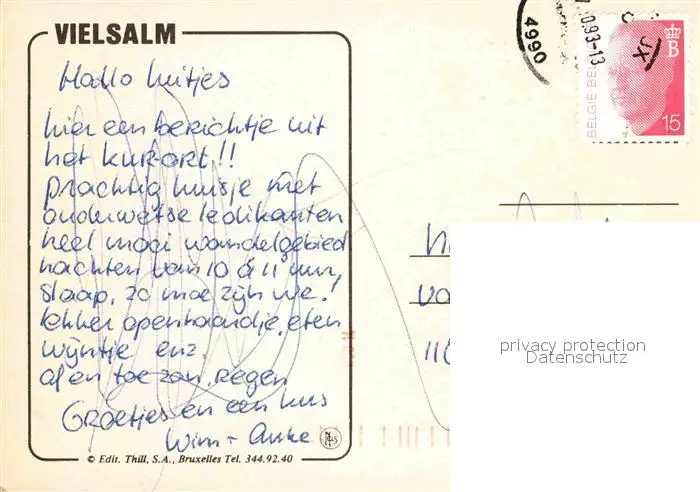 VIELSALM
Hallo luitjes
hier een berichtje uit
het kurort!!
prachtig huisje met
ouderwetse ledikanten
heel mooi wandelgebied
nachten van 10 à 11 uur,
slaap. zo moe zijn we!
lekker openhaardje, eten
wijntje enz.
af en toe zon, regen
Groetjes en een kus
Wim + Anke
© Edit. Thill, S.A., Bruxelles Tel. 344.92.40
4990
0.93-13
BELGIE BEL
B
15
privacy protection
Datenschutz